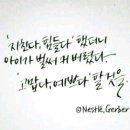 '지친다, 힘들다' 했더니
아이가 벌써 커 버렸다.
'고맙다, 예쁘다' 할 것을.
@Nestlé_Gerber